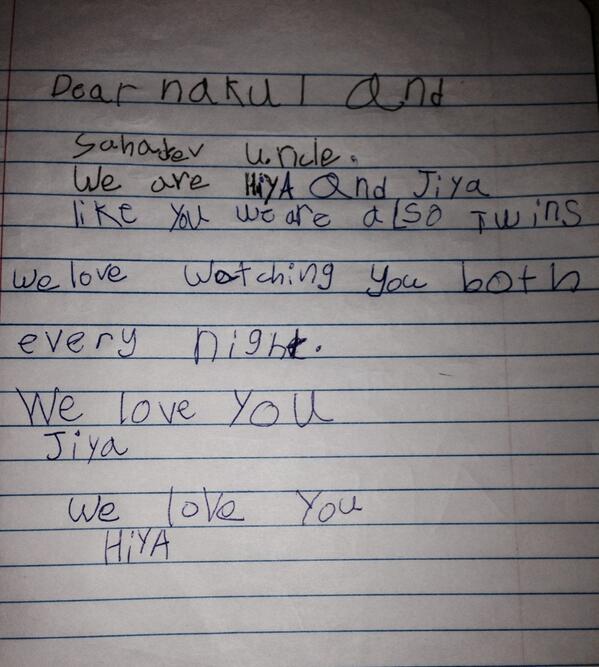 Dear nakul and
Sahadev uncle.
We are HiYA and Jiya
like you we are also Twins
we love watching you both
every night.
We love you
Jiya
We love you
HiYA